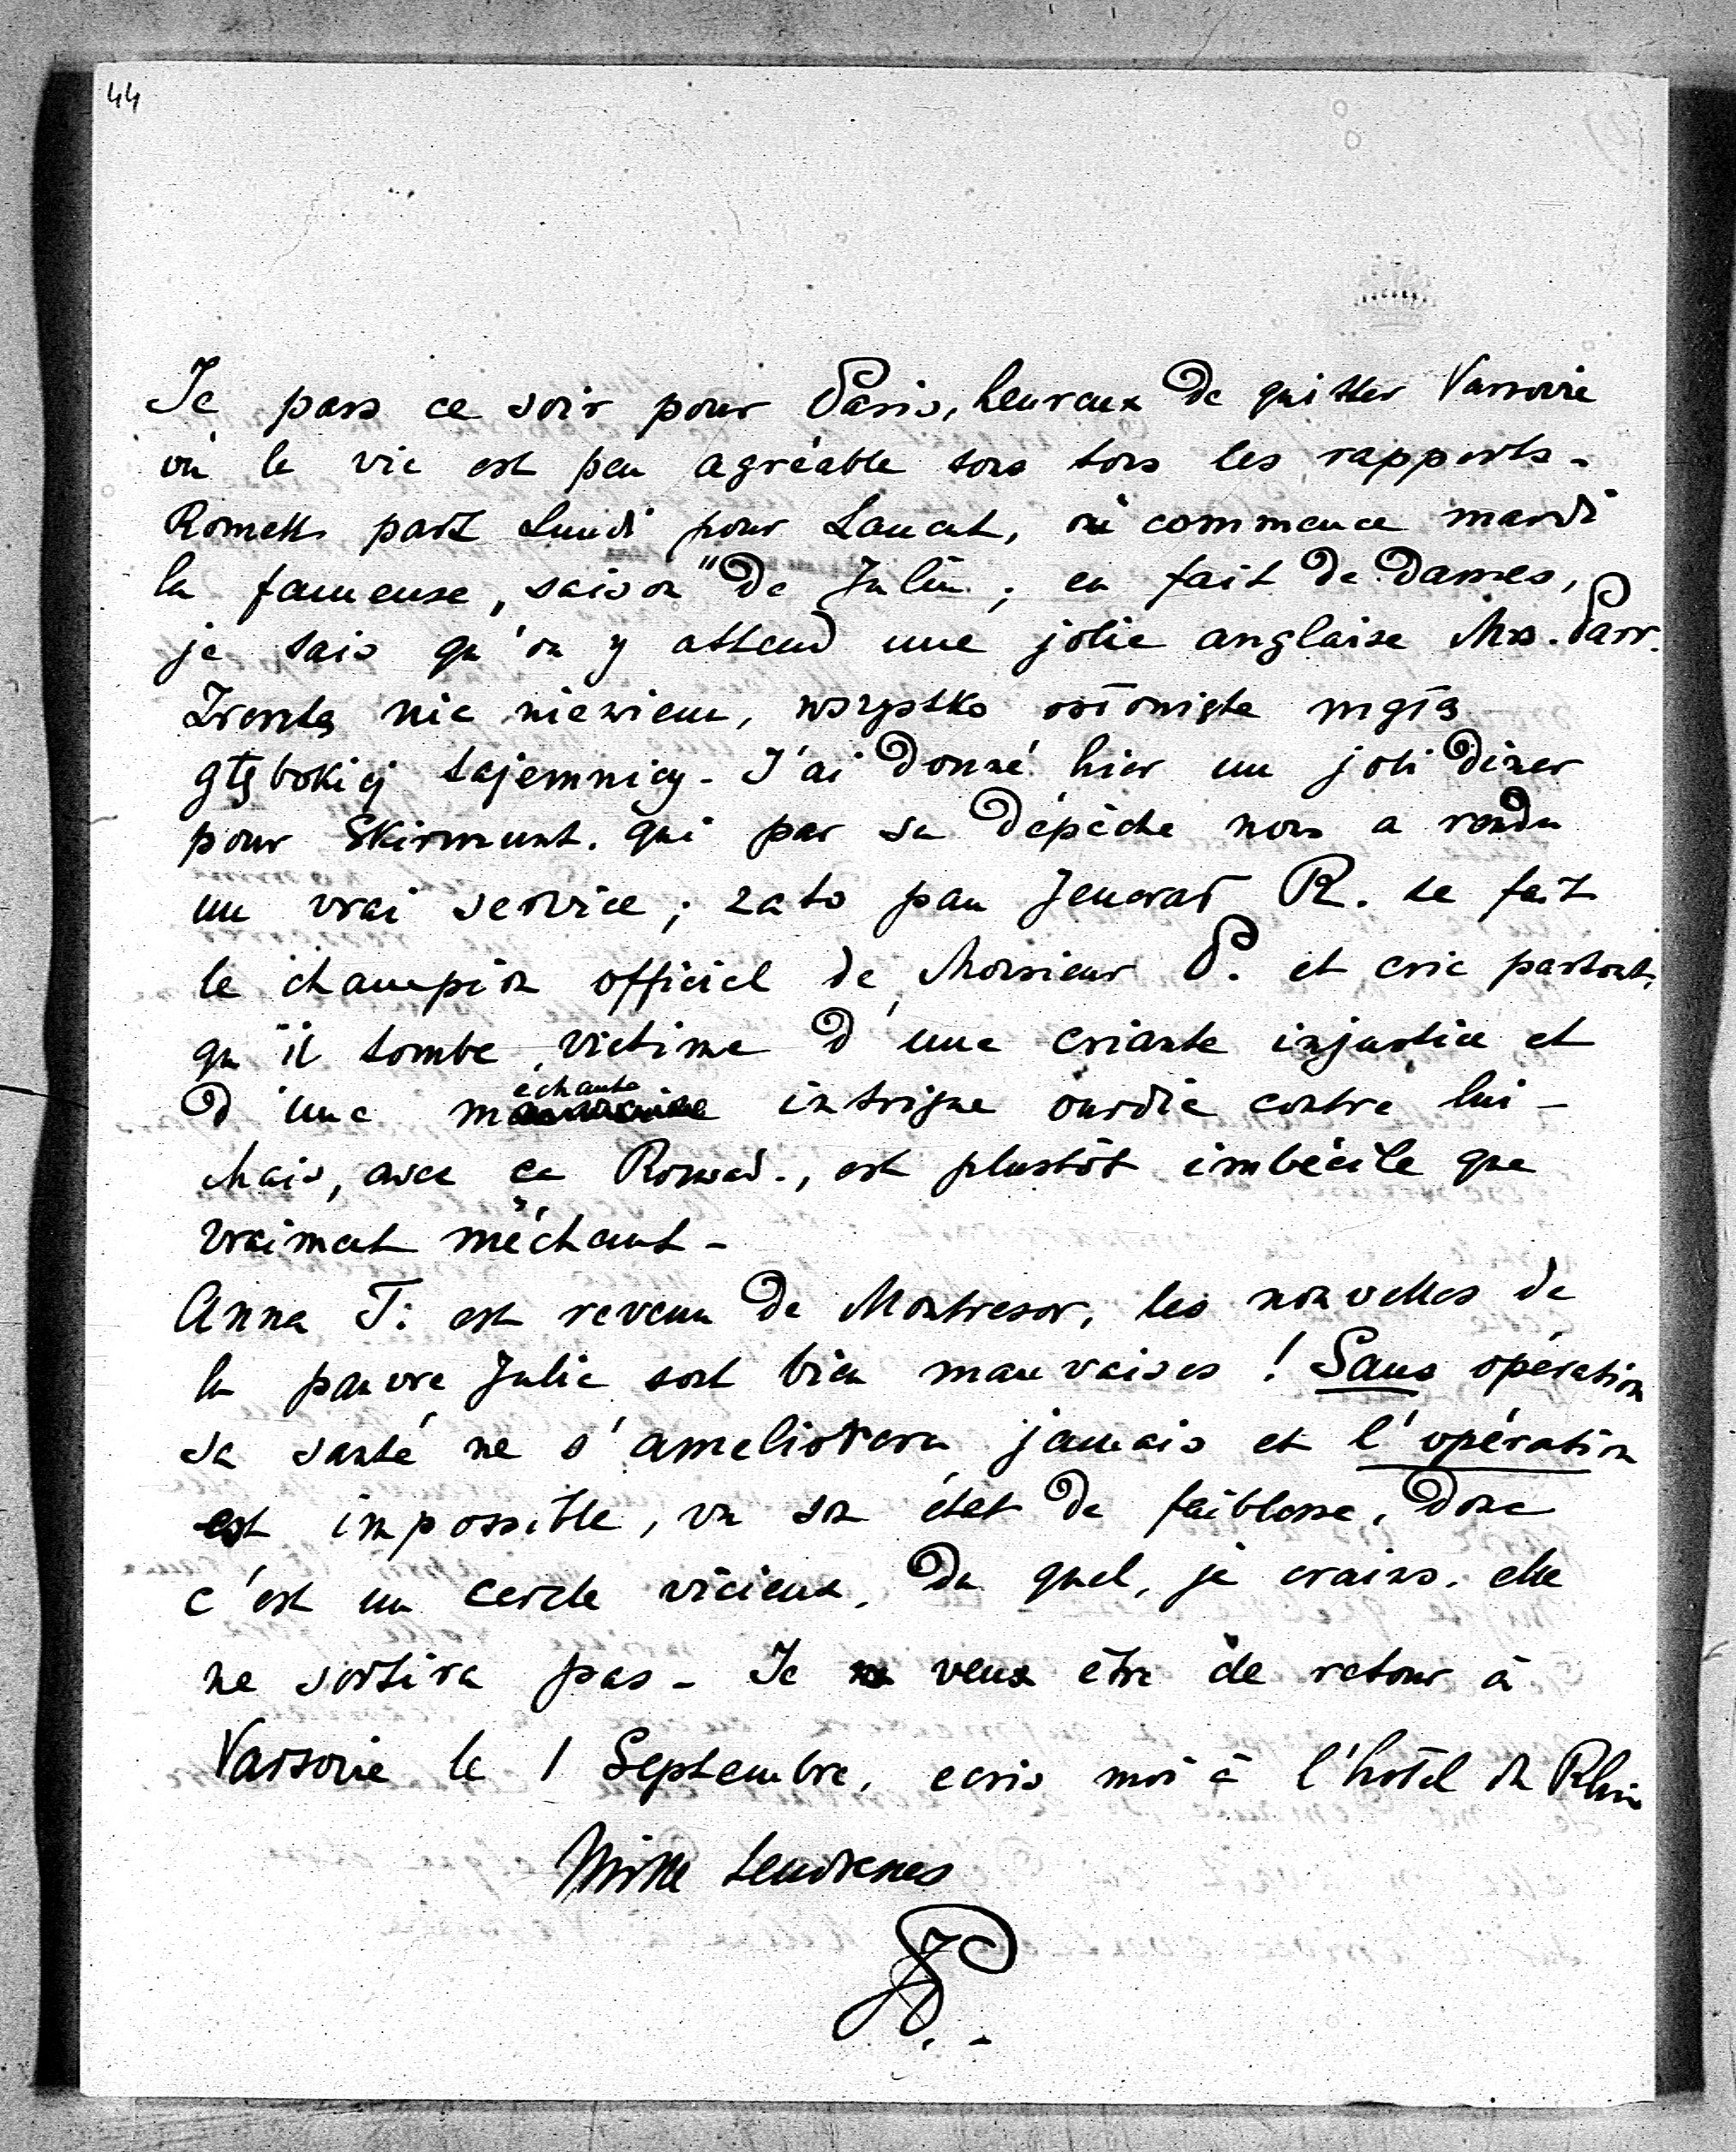 44
Je pars ce soir pour Paris, heureux de quitter Varsovie
où la vie est peu agréable sous tous les rapports -
Romek part Lundi pour Lancut, où commence mardi
la fameuse „saison" de Julin; en fait de dames,
je sais qu'on y attend une jolie anglaise Mrs. Parr.
Zresztą nic niewiem, wszystko osłonięte mgłą
głębokiej tajemnicy - J'ai donné hier un joli diner
pour Skirmunt. qui par sa dépèche nous a rendu
un vrai service; zato pan Jenerał R. se fait
le champion officiel de Monsieur P. et crie partout,
qu'il tombe victime d'une criante injustice et
d'une méchante intrigue ourdie contre lui -
Mais, avec ça , est plustôt imbécile que
vraiment méchant -
Anna T. est revenu de Montresor, les nouvelles de
la pauvre Julie sont bien mauvaises! Sans opération
sa santé ne s'ameliorera jamais et l'opération
est impossible, vu son état de faiblesse, donc
c'est un cercle vicieux, du quel, je crains, elle
ne sortira pas - Je veux être de retour à
Varsovie le 1 Septembre, ecris moi à l'hôtel du Rhin
Mille tendresses